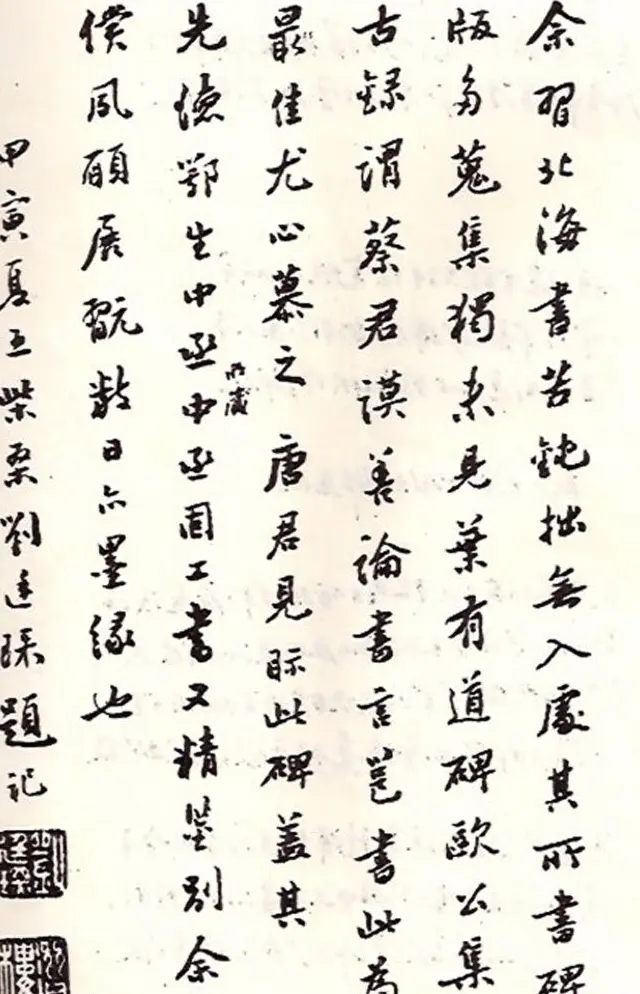 余習北海書苦鈍拙無入處其所書碑
版多蒐集獨未見葉有道碑歐公集
古錄謂蔡君謨善論書言邕書此為
最佳尤心慕之唐君見眎此碑蓋其
先德鄂生中丞所藏中丞固工書又精鑒別余
僕風頤居翫數日亦墨緣也
甲寅夏五柴桑劉廷琛題記